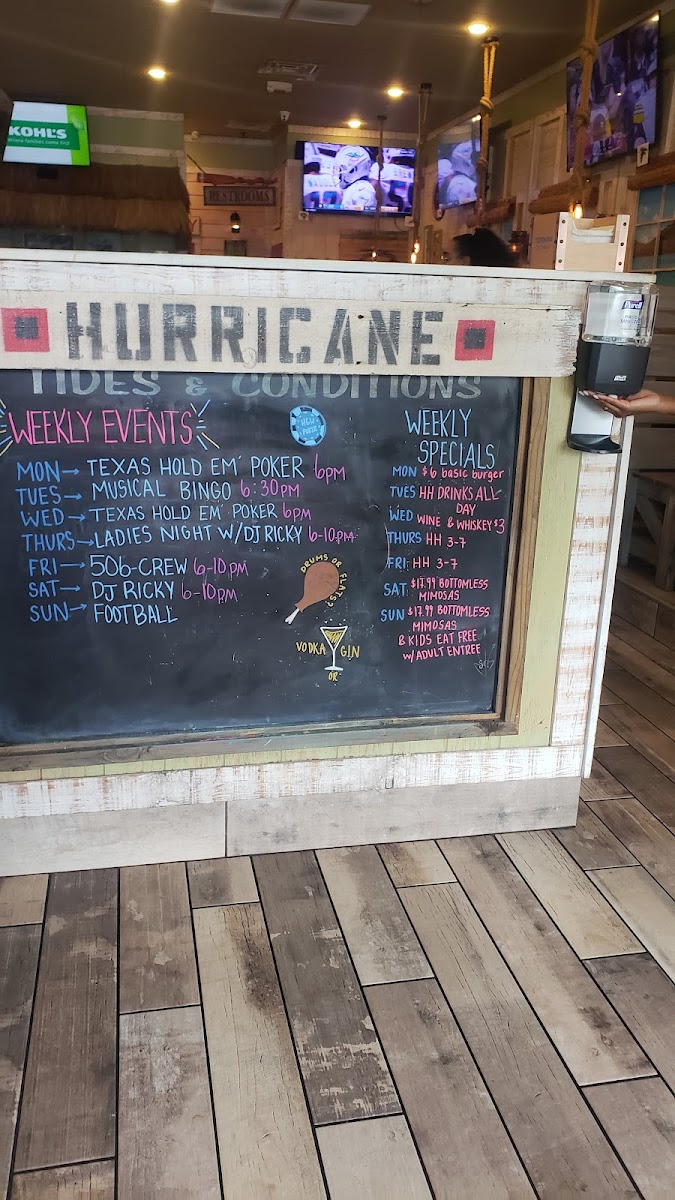 KOHL'S
RESTROOMS
HURRICANE
TIDES & CONDITIONS
WEEKLY EVENTS
MON→ TEXAS HOLD EM' POKER 6PM
TUES→ MUSICAL BINGO 6:30PM
WED→ TEXAS HOLD EM' POKER 6PM
THURS→ LADIES NIGHT W/DJ RICKY 6-10PM
FRI→ 506-CREW 6-10PM
SAT→ DJ RICKY 6-10PM
SUN→ FOOTBALL
DRUMS OR FLATS?
VODKA GIN
OR
WEEKLY
SPECIALS
MON $6 basic burger
TUES HH DRINKS ALL
DAY
WED WINE & WHISKEY $3
THURS HH 3-7
FRI: HH 3-7
SAT $17.99 BOTTOMLESS
MIMOSAS
SUN $17.99 BOTTOMLESS
MIMOSAS
& KIDS EAT FREE
W/ ADULT ENTREE
Purell